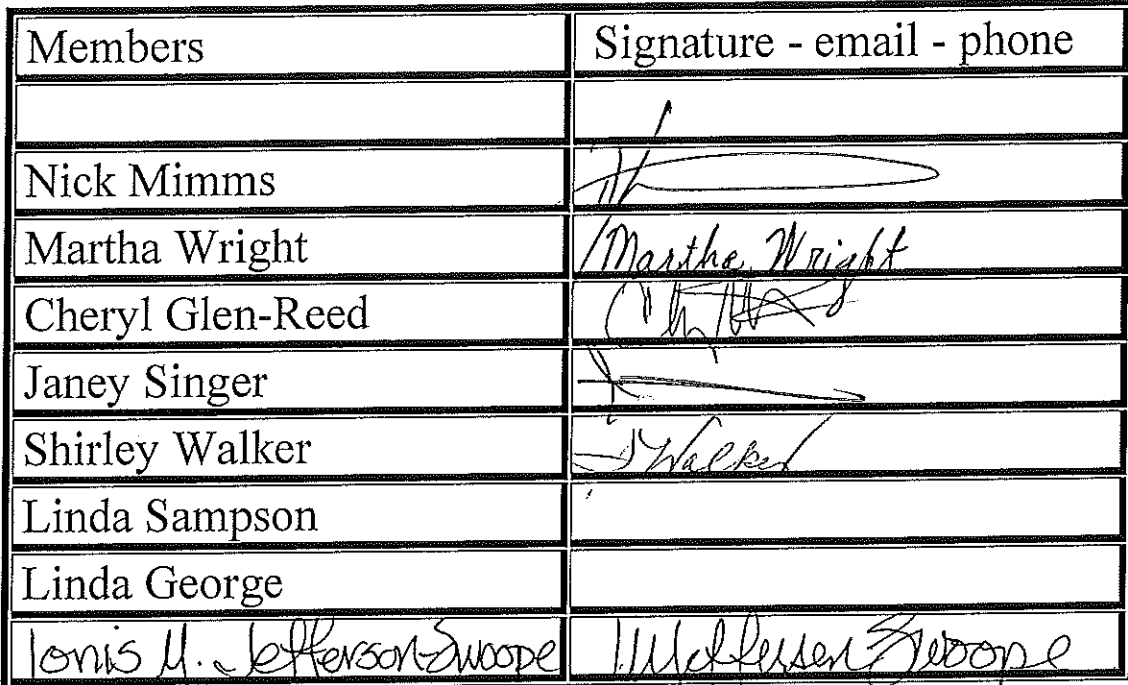 Members Signature - email - phone
Nick Mimms
Martha Wright Martha Wright
Cheryl Glen-Reed
Janey Singer
Shirley Walker SWalker
Linda Sampson
Linda George
Ionis M. Jefferson-Swoope Jefferson Swoope